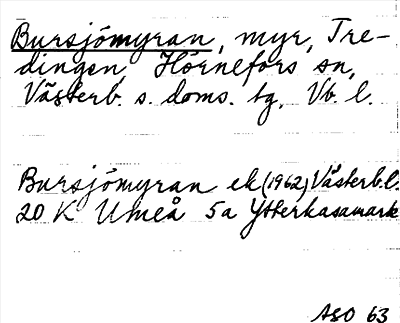 Bursjömyran, myr, Tre-
dingen, Hörnefors sn,
Västerb. s. doms. tg, Vb. l.
Bursjömyran ek (1962) Västerb. l.
20 K Umeå 5a Ytterkasamark
ASO 63